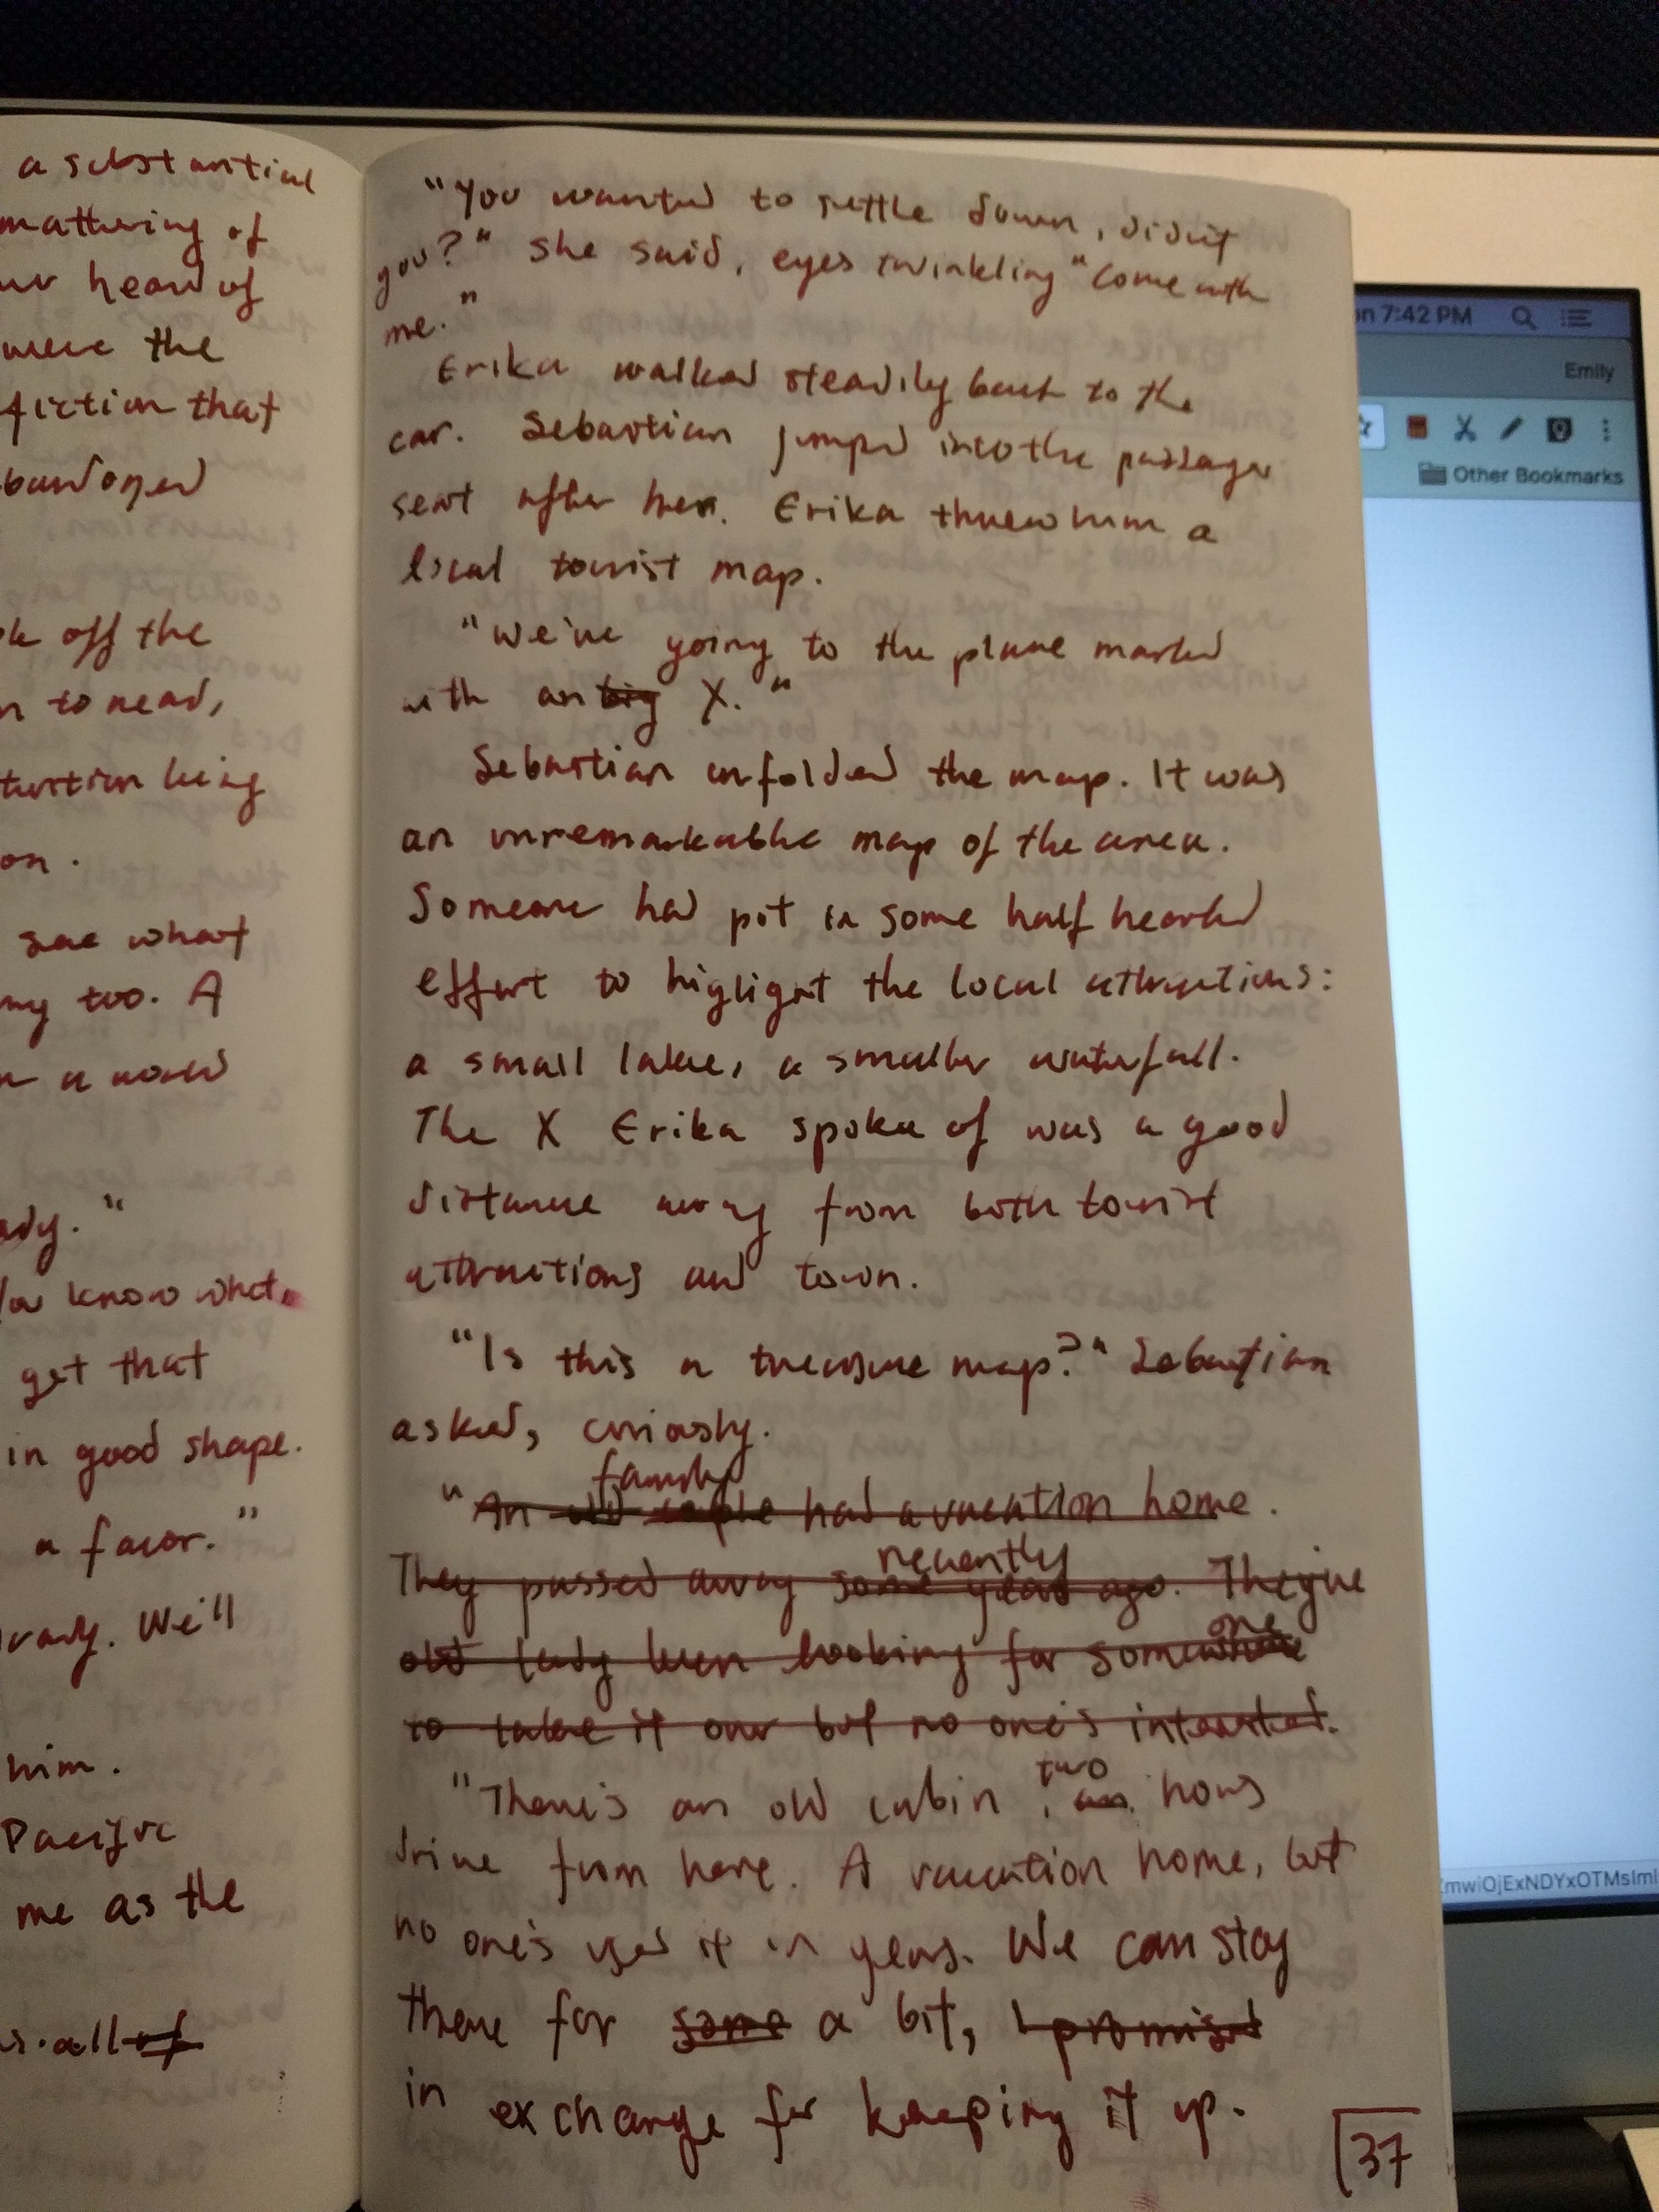 a substantial
mattering of
heard of
were the
fiction that
off the
to read,
being
on.
see what
my too. A
a world
ady."
know what
get that
in good shape.
a favor."
We'll
him.
Pacific
me as the
all of
"You wanted to settle down, didn't
you?" she said, eyes twinkling "Come with
me."
Erika walked steadily back to the
car. Sebastian jumped into the passager
seat after her. Erika threw him a
local tourist map.
"We're going to the place marked
with an big X."
Sebastian unfolded the map. It was
an unremarkable map of the area.
Someone had put in some half hearted
effort to higligat the local attractions:
a small lake, a smaller waterfall.
The X Erika spoke of was a good
distance away from both tourist
attractions and town.
"Is this a treasure map?" Sebastian
asked, curiously.
family
"An old couple had a vacation home.
recently
They passed away some years ago. They've
one
old lady been looking for somewhere
to take it over but no one's interested.
two
"There's an old cabin, an hours
drive from here. A vacation home, but
no one's used it in years. We can stay
there for some a bit, I promised
in exchange for keeping it up.
37
on 7:42 PM
Emily
Other Bookmarks
mwiOjExNDYxOTMsIml